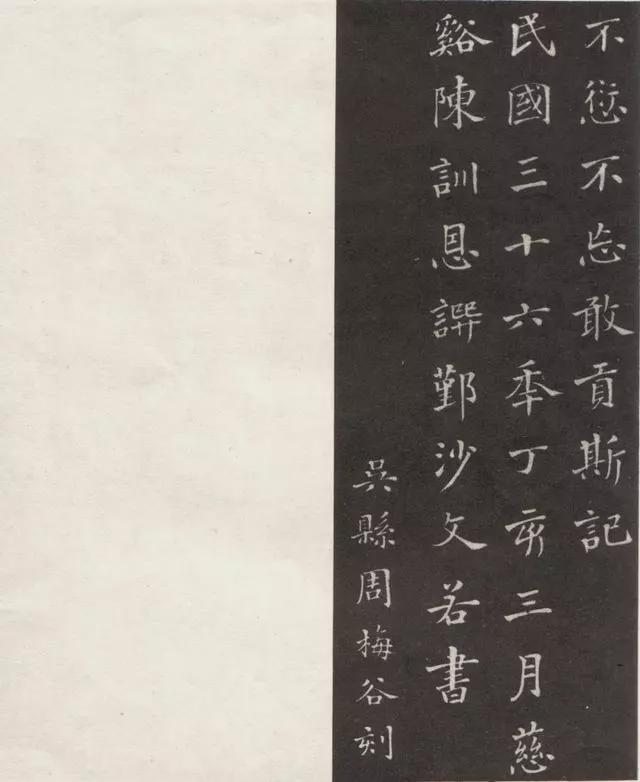 不愆不忘敢貢斯記
民國三十六秊丁亥三月慈
谿陳訓恩譔鄞沙文若書
吳縣周梅谷刻